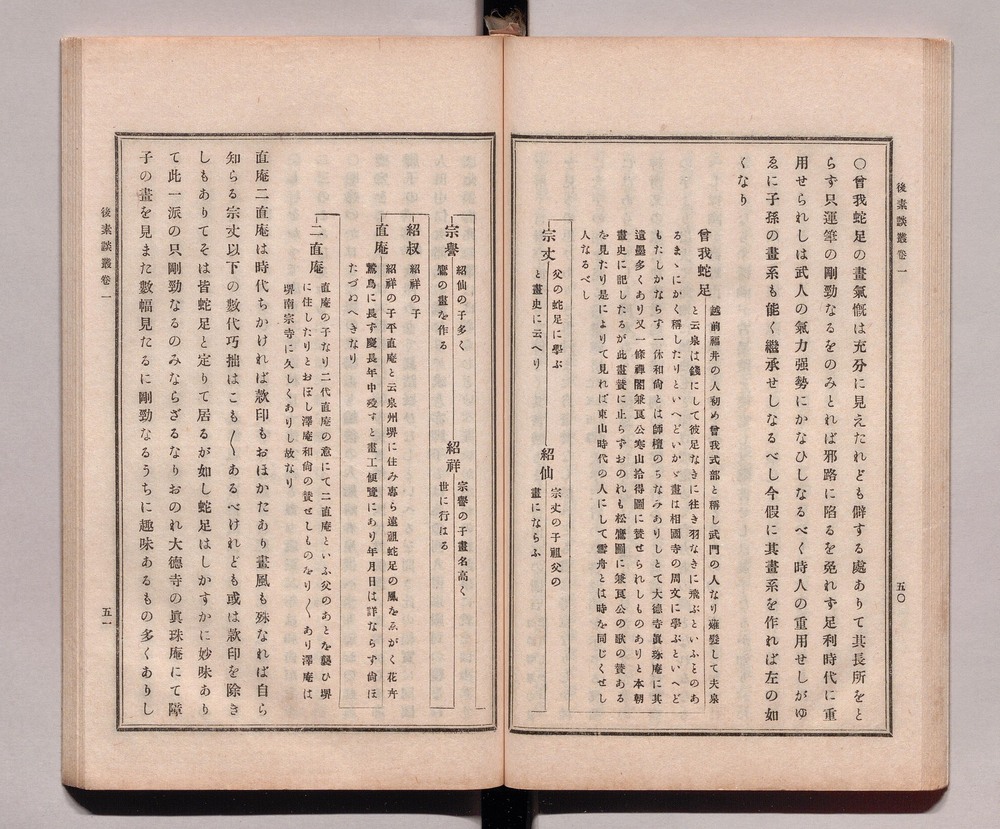 後素談叢卷一
五〇
〇曾我蛇足の畫氣慨は充分に見えたれども僻する處ありて其長所をと
らず只運筆の剛勁なるをのみとれば邪路に陷るを免れず足利時代に重
用せられしは武人の氣力强勢にかなひしなるべく時人の重用せしがゆ
ゑに子孫の畫系も能く繼承せしなるべし今假に其畫系を作れば左の如
くなり
曾我蛇足
越前福井の人初め曾我式部と稱し武門の人なり薙髮して夫泉
と云泉は錢にして彼足なきに往き羽なきに飛ぶといふとのあ
るまゝにかく稱したりといへどいかゞ畫は相國寺の周文に學ぶといへど
もたしかならず一休和尙とは師檀のちなみありしとて大德寺眞珠庵に其
遺墨多くあり又一條禪閤兼良公寒山拾得圖に賛せられしものありと本朝
畫史に記したるが此畫賛に止らずおのれも松鷹圖に兼良公の歌の賛ある
を見たり是によりて見れば東山時代の人にして雪舟とは時を同じくせし
人なるべし
宗丈
父の蛇足に學ぶ
と畫史に云へり
紹仙
宗丈の子祖父の
畫にならふ
宗譽
紹仙の子多く
鷺の畫を作る
紹祥
宗譽の子畫名高く
世に行はる
紹叔
紹祥の子
直庵
紹祥の子平直庵と云泉州堺に住み專ら遠祖蛇足の風をゑがく花卉
鷙鳥に長ず慶長年中歿すと畫工便覽にあり年月日は詳ならず尙ほ
たづぬへきなり
二直庵
直庵の子なり二代直庵の意にて二直庵といふ父のあとを襲ひ堺
に住したりとおぼし澤庵和尙の賛せしものをり〱あり澤庵は
堺南宗寺に久しくありし故なり
直庵二直庵は時代ちかければ款印もおほかたあり畫風も殊なれば自ら
知らる宗丈以下の數代巧拙はこも〱あるべけれども或は款印を除き
しもありてそは皆蛇足と定りて居るが如し蛇足はしかすかに妙味あり
て此一派の只剛勁なるのみならざるなりおのれ大德寺の眞珠庵にて障
子の畫を見また數幅見たるに剛勁なるうちに趣味あるもの多くありし
後素談叢卷一
五一